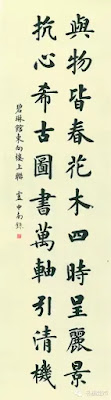 與物皆春花木四時呈麗景
抗心希古圖書萬軸引清機
碧琳館東向樓上聯